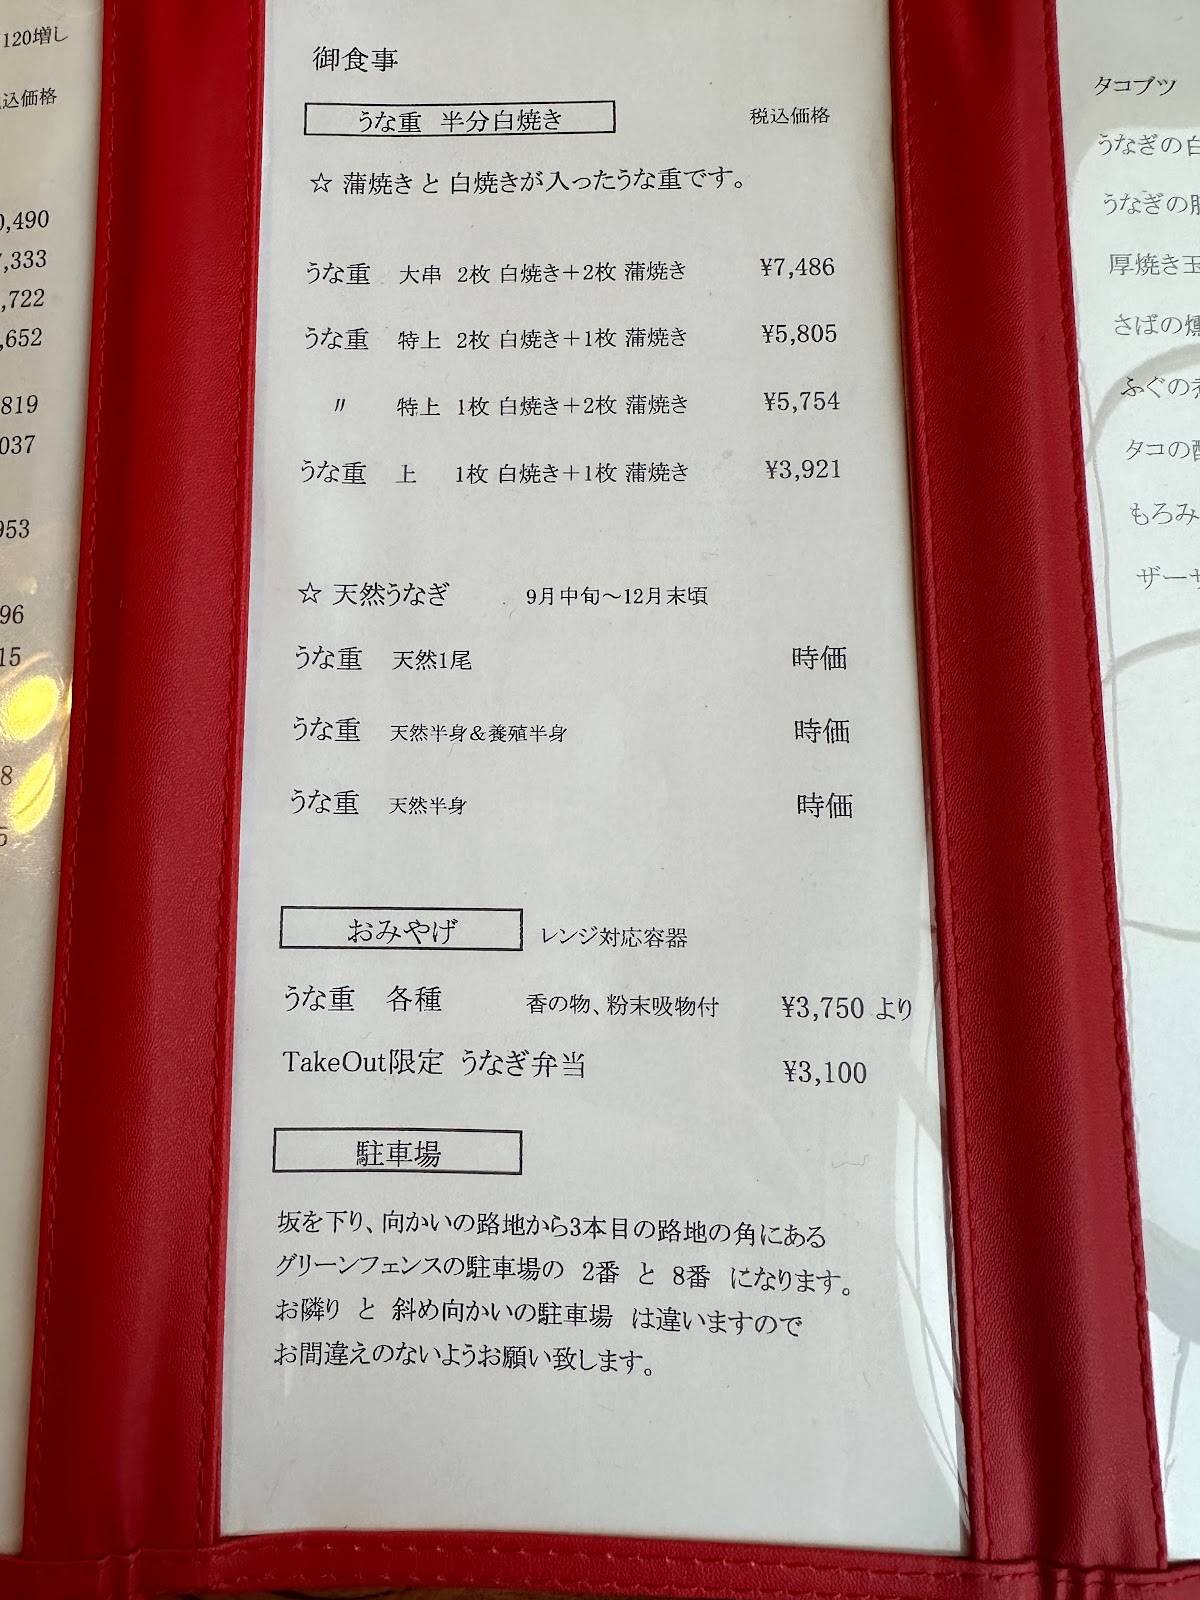 120増し
込価格
0,490
7,333
,722
,652
819
037
953
96
15
8
5
御食事
うな重 半分白焼き 税込価格
☆ 蒲焼き と 白焼きが入ったうな重です。
うな重 大串 2枚 白焼き＋2枚 蒲焼き ¥7,486
うな重 特上 2枚 白焼き＋1枚 蒲焼き ¥5,805
〃 特上 1枚 白焼き＋2枚 蒲焼き ¥5,754
うな重 上 1枚 白焼き＋1枚 蒲焼き ¥3,921
☆ 天然うなぎ 9月中旬～12月末頃
うな重 天然1尾 時価
うな重 天然半身＆養殖半身 時価
うな重 天然半身 時価
おみやげ レンジ対応容器
うな重 各種 香の物、粉末吸物付 ¥3,750 より
TakeOut限定 うなぎ弁当 ¥3,100
駐車場
坂を下り、向かいの路地から3本目の路地の角にある
グリーンフェンスの駐車場の 2番 と 8番 になります。
お隣り と 斜め向かいの駐車場 は違いますので
お間違えのないようお願い致します。
タコブツ
うなぎの白
うなぎの
厚焼き玉
さばの燻
ふぐの
タコの
もろみ
ザーサ